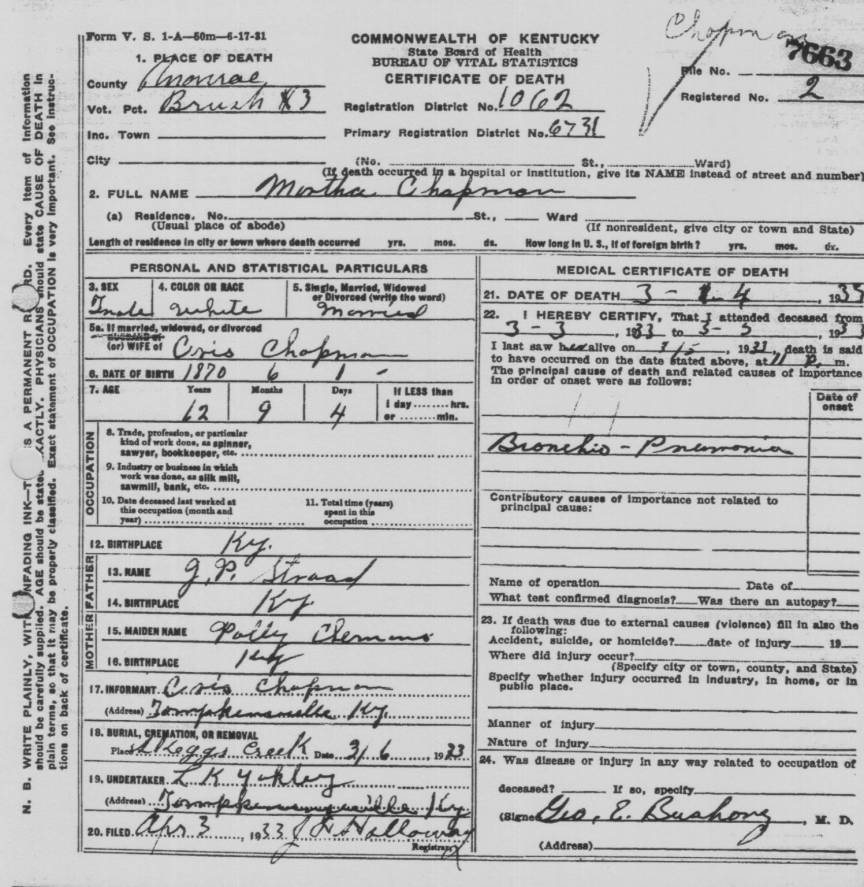 Chapman
7663
Form V. S. 1-A—50m-6-17-31
COMMONWEALTH OF KENTUCKY
State Board of Health
BUREAU OF VITAL STATISTICS
CERTIFICATE OF DEATH
File No.
Registered No. 2
1. PLACE OF DEATH
County Monroe
Vot. Pct. Brush #3
Registration District No. 1062
Inc. Town
Primary Registration District No. 6731
City (No. St., Ward)
(If death occurred in a hospital or institution, give its NAME instead of street and number)
2. FULL NAME Martha Chapman
(a) Residence. No. St., Ward
(Usual place of abode) (If nonresident, give city or town and State)
Length of residence in city or town where death occurred yrs. mos. ds. How long in U. S., if of foreign birth? yrs. mos. ds.
PERSONAL AND STATISTICAL PARTICULARS
3. SEX 4. COLOR OR RACE 5. Single, Married, Widowed
or Divorced (write the word)
White Married
5a. If married, widowed, or divorced
HUSBAND of
(or) WIFE of Oris Chapman
6. DATE OF BIRTH 1870 6 1 -
7. AGE Years Months Days If LESS than
1 day ........ hrs.
or ........ min.
62 9 4
OCCUPATION
8. Trade, profession, or particular
kind of work done, as spinner,
sawyer, bookkeeper, etc.
9. Industry or business in which
work was done, as silk mill,
sawmill, bank, etc.
10. Date deceased last worked at
this occupation (month and
year)
11. Total time (years)
spent in this
occupation
12. BIRTHPLACE Ky.
FATHER
13. NAME J. P. Straad
14. BIRTHPLACE Ky
MOTHER
15. MAIDEN NAME Polly Clemans
16. BIRTHPLACE Ky
17. INFORMANT Oris Chapman
(Address) Tompkinsville Ky.
18. BURIAL, CREMATION, OR REMOVAL
Place Skeggs Creek Date 3/6, 1933
19. UNDERTAKER L K Yokley
(Address) Tompkinsville Ky.
20. FILED Apr 3, 1933 Holloway
Registrar
MEDICAL CERTIFICATE OF DEATH
21. DATE OF DEATH 3 - 4, 1933
22. I HEREBY CERTIFY, That I attended deceased from
3 - 3, 1933 to 3 - 5, 1933
I last saw her alive on 3/5, 1933, death is said
to have occurred on the date stated above, at 11 P. m.
The principal cause of death and related causes of importance
in order of onset were as follows:
Date of
onset
Bronchio - Pneumonia
Contributory causes of importance not related to
principal cause:
Name of operation Date of
What test confirmed diagnosis? Was there an autopsy?
23. If death was due to external causes (violence) fill in also the
following:
Accident, suicide, or homicide? date of injury 19
Where did injury occur?
(Specify city or town, county, and State)
Specify whether injury occurred in industry, in home, or in
public place.
Manner of injury
Nature of injury
24. Was disease or injury in any way related to occupation of
deceased? If so, specify
(Signed Geo. E. Bushong, M. D.
(Address)
N. B. WRITE PLAINLY, WITH UNFADING INK—THIS IS A PERMANENT RECORD. Every item of information
should be carefully supplied. AGE should be stated EXACTLY. PHYSICIANS should state CAUSE OF DEATH in
plain terms, so that it may be properly classified. Exact statement of OCCUPATION is very important. See instruc-
tions on back of certificate.